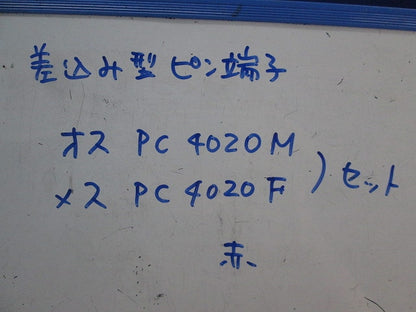 差込み型ピン端子
オス PC 4020M
メス PC 4020F ) セット
赤